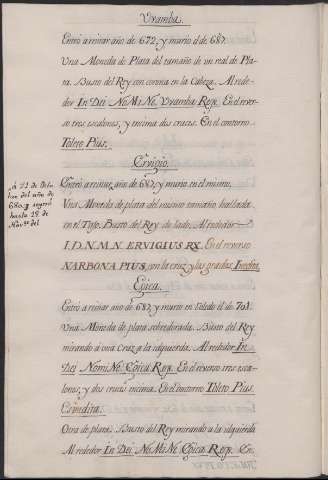 Uvamba.
Entró a reinar año de 672, y murio el de 687.
Una Moneda de Plata del tamaño de un real de Pla-
ta. Busto del Rey con corona en la Cabeza. Al rede-
dor In Dei NoMiNe Uvamba Rex. En el rever-
so tres escalones, y encima dos cruces. En el contorno
Toleto Pius.
Ervigio.
Entró a reinar año de 687, y murio en el mismo.
a 21 de Octu-
bre del año de
680, y reynó
hasta 15 de
Nov.e del
Una Moneda de plata del mismo tamaño hallada
en el Tajo. Busto del Rey de lado. Al rededor
I. D. N. M. N. ERVIGIUS RX. En el reverso
NARBONA PIUS, con la cruz y las gradas. Inedita.
Egica.
Entró a reinar año de 687, y murio en Toledo el de 701.
Una Moneda de plata sobredorada. Busto del Rey
mirando a una Cruz a la izquierda. Al rededor In
Dei NomiNe Egica Rex. En el reverso tres esca-
lones, y dos cruces encima. En el contorno Toleto Pius.
Es inedita.
Otra de plata. Busto del Rey mirando a la izquierda
Al rededor In Dei NoMiNe Egica Rex. En